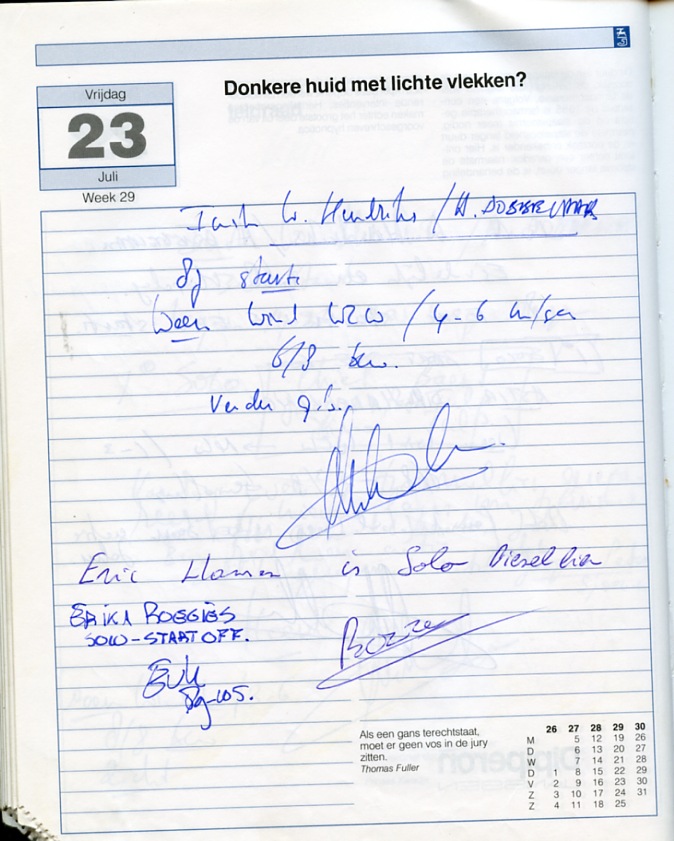 Donkere huid met lichte vlekken?
Vrijdag
23
Juli
Week 29
W. Hendriks / H. DOBBELAAR
start
Weer: Wind WZW / 4-6 m/sec
6/8 bew.
Verder g.b.
Eric is Solo
ERIKA ROEGIES
SOLO-STARTOFF.
Als een gans terechtstaat,
moet er geen vos in de jury
zitten.
Thomas Fuller
26 27 28 29 30
M 5 12 19 26
D 6 13 20 27
W 7 14 21 28
D 1 8 15 22 29
V 2 9 16 23 30
Z 3 10 17 24 31
Z 4 11 18 25